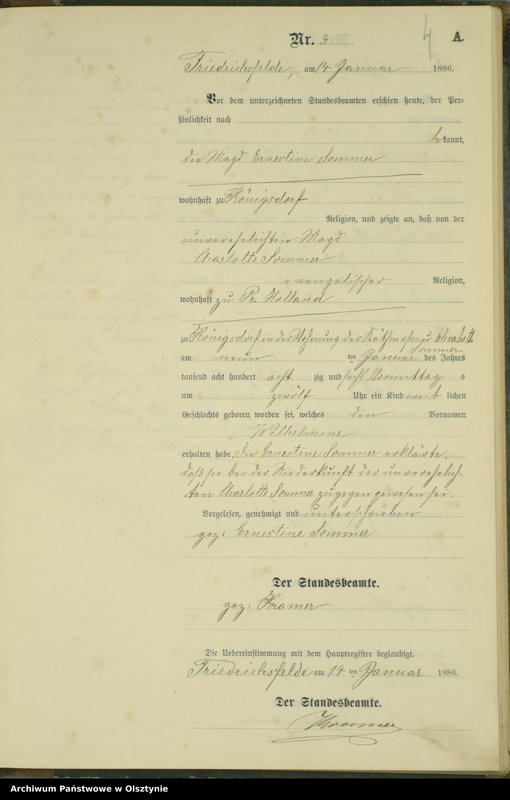 4
Nr. 3 A.
Friedrichsfelde, am 14 Januar 1886.
Vor dem unterzeichneten Standesbeamten erschien heute, der Per=
sönlichkeit nach
be kannt,
die Magd Ernestine Sommer
wohnhaft zu Königsdorf
Religion, und zeigte an, daß von der
unverehelichten Magd
Charlotte Sommer
evangelischer Religion,
wohnhaft zu Pr. Holland
zu Königsdorf in der Wohnung der Käthnerfrau Charlotte
Sommer
am neun ten Januar des Jahres
tausend acht hundert acht zig und sechs Vormittag s
um zwölf Uhr ein Kind weib lichen
Geschlechts geboren worden sei, welches den Vornamen
Wilhelmine
erhalten habe. Die Ernestine Sommer erklärte,
daß sie bei der Niederkunft der unverehelich-
ten Charlotte Sommer zugegen gewesen sei.
Vorgelesen, genehmigt und unterschrieben
gez: Ernestine Sommer
Der Standesbeamte.
gez: Kramer
Die Uebereinstimmung mit dem Hauptregister beglaubigt.
Friedrichsfelde am 14 ten Januar 1886.
Der Standesbeamte.
Kramer
Archiwum Państwowe w Olsztynie